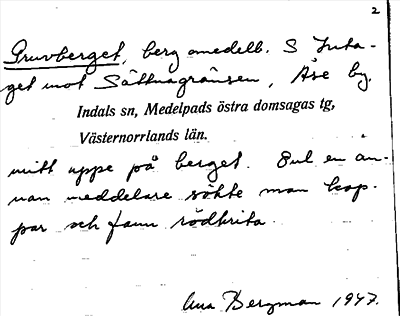 2
Gruvberget, berg omedelb. S Inta-
get mot Sättnagränsen, Åse by.
Indals sn, Medelpads östra domsagas tg,
Västernorrlands län.
mitt uppe på berget. Enl en an-
nan meddelare sökte man kop-
par och fann rödkrita.
Bergman 1947.